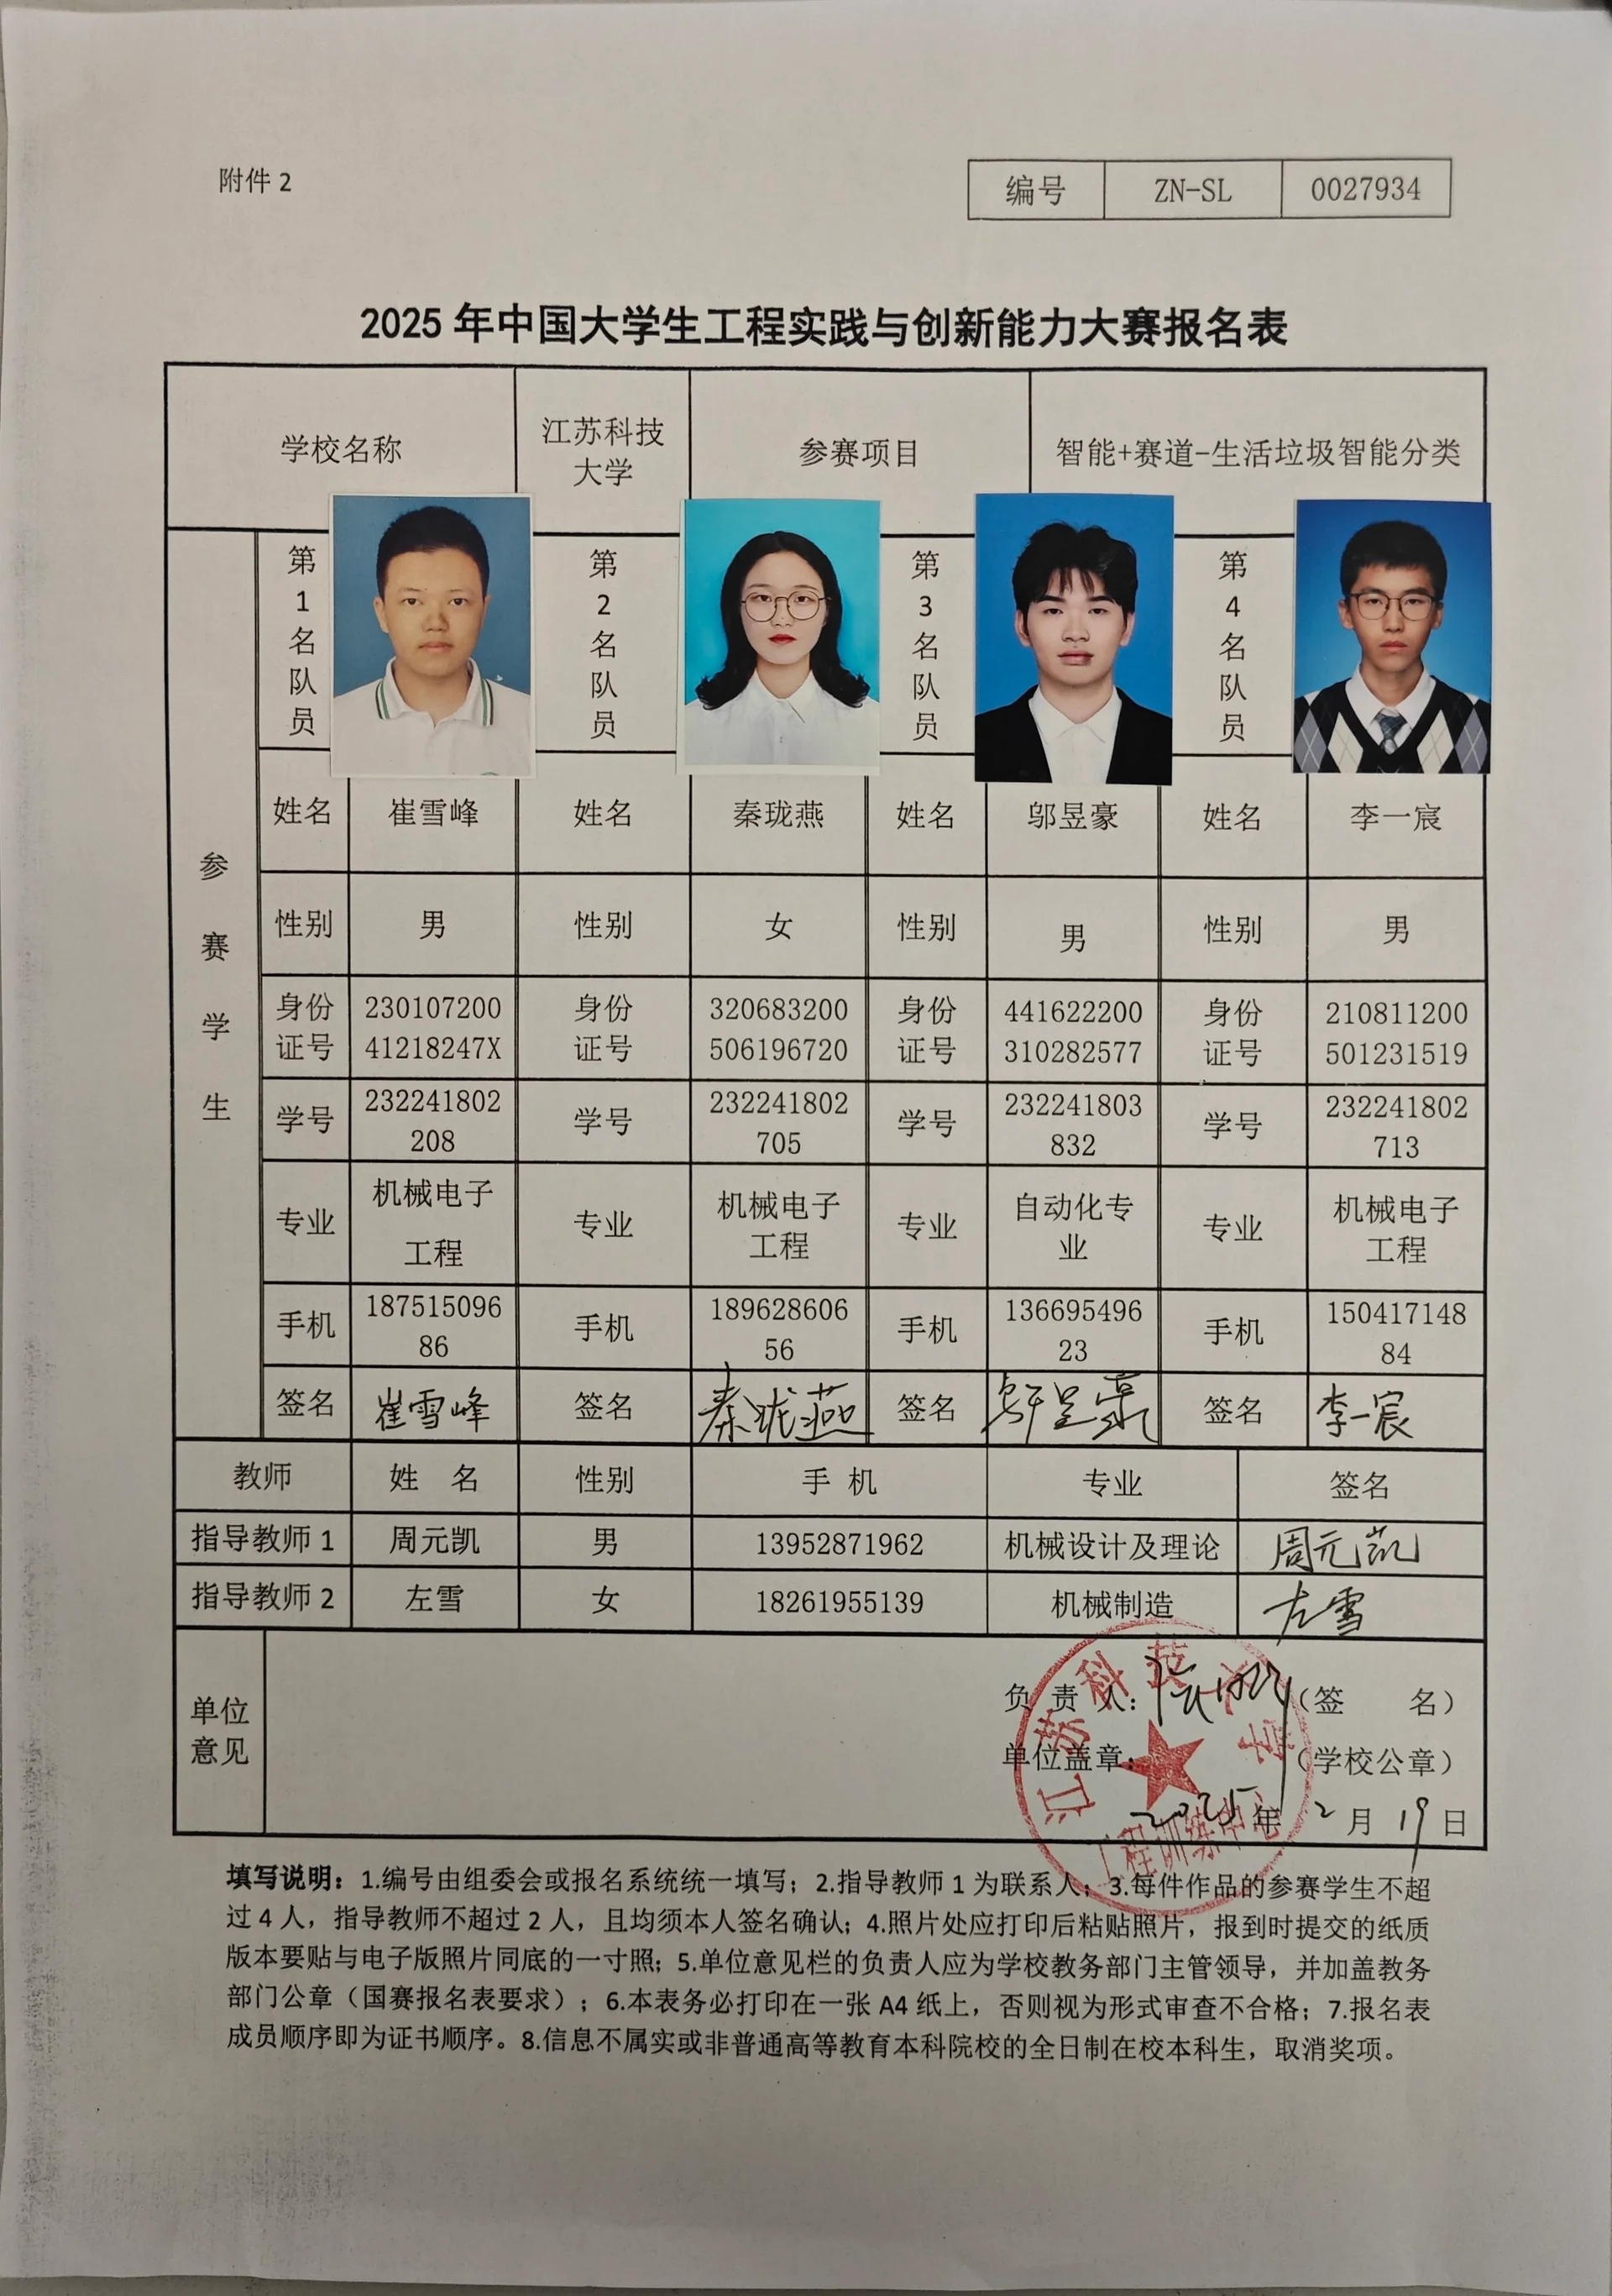 附件 2
编号 ZN-SL 0027934
2025 年中国大学生工程实践与创新能力大赛报名表
学校名称 江苏科技大学 参赛项目 智能+赛道-生活垃圾智能分类
参赛学生
第1名队员 第2名队员 第3名队员 第4名队员
姓名 崔雪峰 姓名 秦珑燕 姓名 邬昱豪 姓名 李一宸
性别 男 性别 女 性别 男 性别 男
身份证号 23010720041218247X 身份证号 320683200506196720 身份证号 441622200310282577 身份证号 210811200501231519
学号 232241802208 学号 232241802705 学号 232241803832 学号 232241802713
专业 机械电子工程 专业 机械电子工程 专业 自动化专业 专业 机械电子工程
手机 18751509686 手机 18962860656 手机 13669549623 手机 15041714884
签名 崔雪峰 签名 秦珑燕 签名 邬昱豪 签名 李一宸
教师 姓 名 性别 手 机 专业 签名
指导教师 1 周元凯 男 13952871962 机械设计及理论 周元凯
指导教师 2 左雪 女 18261955139 机械制造 左雪
单位意见
负 责 人: (签 名)
单位盖章: (学校公章)
2025 年 2 月 19 日
江苏科技大学
工程训练中心
填写说明：1.编号由组委会或报名系统统一填写；2.指导教师 1 为联系人；3.每件作品的参赛学生不超
过 4 人，指导教师不超过 2 人，且均须本人签名确认；4.照片处应打印后粘贴照片，报到时提交的纸质
版本要贴与电子版照片同底的一寸照；5.单位意见栏的负责人应为学校教务部门主管领导，并加盖教务
部门公章（国赛报名表要求）；6.本表务必打印在一张 A4 纸上，否则视为形式审查不合格；7.报名表
成员顺序即为证书顺序。8.信息不属实或非普通高等教育本科院校的全日制在校本科生，取消奖项。